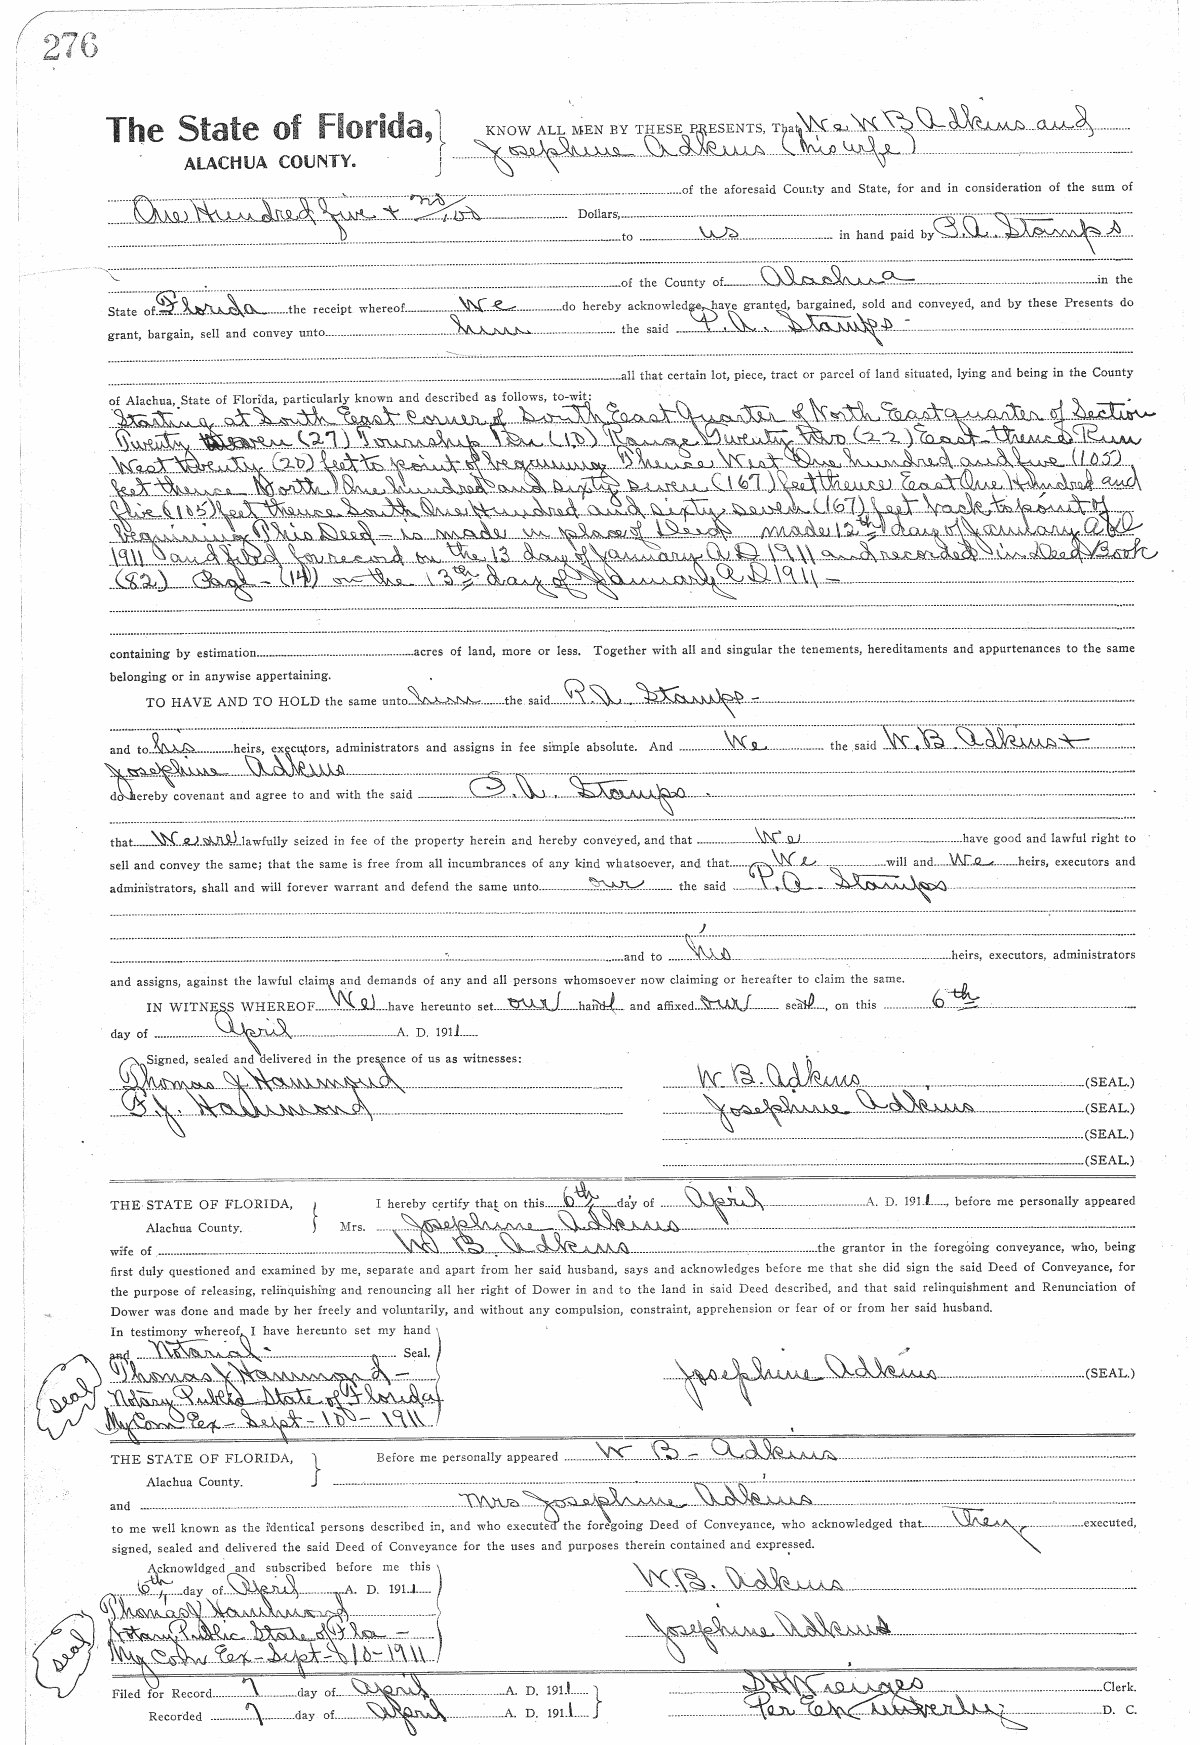 276
The State of Florida, KNOW ALL MEN BY THESE PRESENTS, That We W B Adkins and
ALACHUA COUNTY. Josephine Adkins (his wife)
of the aforesaid County and State, for and in consideration of the sum of
One Hundred five + no/100 Dollars,
to us in hand paid by P.A. Stamps
of the County of Alachua in the
State of Florida the receipt whereof We do hereby acknowledge, have granted, bargained, sold and conveyed, and by these Presents do
grant, bargain, sell and convey unto him the said P.A. Stamps -
all that certain lot, piece, tract or parcel of land situated, lying and being in the County
of Alachua, State of Florida, particularly known and described as follows, to-wit:
Starting at South East corner of South East Quarter of North East quarter of Section
Twenty seven (27) Township Ten (10) Range Twenty two (22) East - thence Run
West twenty (20) feet to point of beginning Thence West One hundred and five (105)
feet thence North One hundred and sixty seven (167) feet thence East One Hundred and
five (105) feet thence South One Hundred and sixty seven (167) feet back to point of
beginning This Deed - is made in place of Deed made 12th day of January A.D
1911 and filed for record on the 13 day of January A D 1911 and recorded in Deed Book
(82) Page - (14) on the 13th day of January A D 1911 -
containing by estimation acres of land, more or less. Together with all and singular the tenements, hereditaments and appurtenances to the same
belonging or in anywise appertaining.
TO HAVE AND TO HOLD the same unto him the said P.A. Stamps -
and to his heirs, executors, administrators and assigns in fee simple absolute. And We the said W.B. Adkins +
Josephine Adkins
do hereby covenant and agree to and with the said P.A. Stamps.
that We are lawfully seized in fee of the property herein and hereby conveyed, and that We have good and lawful right to
sell and convey the same; that the same is free from all incumbrances of any kind whatsoever, and that We will and We heirs, executors and
administrators, shall and will forever warrant and defend the same unto our the said P.A. Stamps
and to his heirs, executors, administrators
and assigns, against the lawful claims and demands of any and all persons whomsoever now claiming or hereafter to claim the same.
IN WITNESS WHEREOF We have hereunto set our hand and affixed our seal, on this 6th
day of April A. D. 1911
Signed, sealed and delivered in the presence of us as witnesses:
Thomas J Hammond W. B. Adkins (SEAL.)
F.J. Hammond Josephine Adkins (SEAL.)
(SEAL.)
(SEAL.)
THE STATE OF FLORIDA, I hereby certify that on this 6th day of April A. D. 1911, before me personally appeared
Alachua County. Mrs. Josephine Adkins
wife of W B. Adkins the grantor in the foregoing conveyance, who, being
first duly questioned and examined by me, separate and apart from her said husband, says and acknowledges before me that she did sign the said Deed of Conveyance, for
the purpose of releasing, relinquishing and renouncing all her right of Dower in and to the land in said Deed described, and that said relinquishment and Renunciation of
Dower was done and made by her freely and voluntarily, and without any compulsion, constraint, apprehension or fear of or from her said husband.
In testimony whereof, I have hereunto set my hand
and Notarial - Seal.
seal Thomas J Hammond - Josephine Adkins (SEAL.)
Notary Public State of Florida
My Com Ex - Sept - 10 - 1911
THE STATE OF FLORIDA, Before me personally appeared W B - Adkins
Alachua County.
and Mrs Josephine Adkins
to me well known as the identical persons described in, and who executed the foregoing Deed of Conveyance, who acknowledged that They executed,
signed, sealed and delivered the said Deed of Conveyance for the uses and purposes therein contained and expressed.
Acknowldged and subscribed before me this
6th day of April A. D. 1911 W.B. Adkins
Thomas J Hammond
seal Notary Public State of Fla - Josephine Adkins
My Com Ex - Sept - 10 - 1911
Filed for Record 7 day of April A. D. 1911 S H Wienges Clerk.
Recorded 7 day of April A. D. 1911 Per D. C.